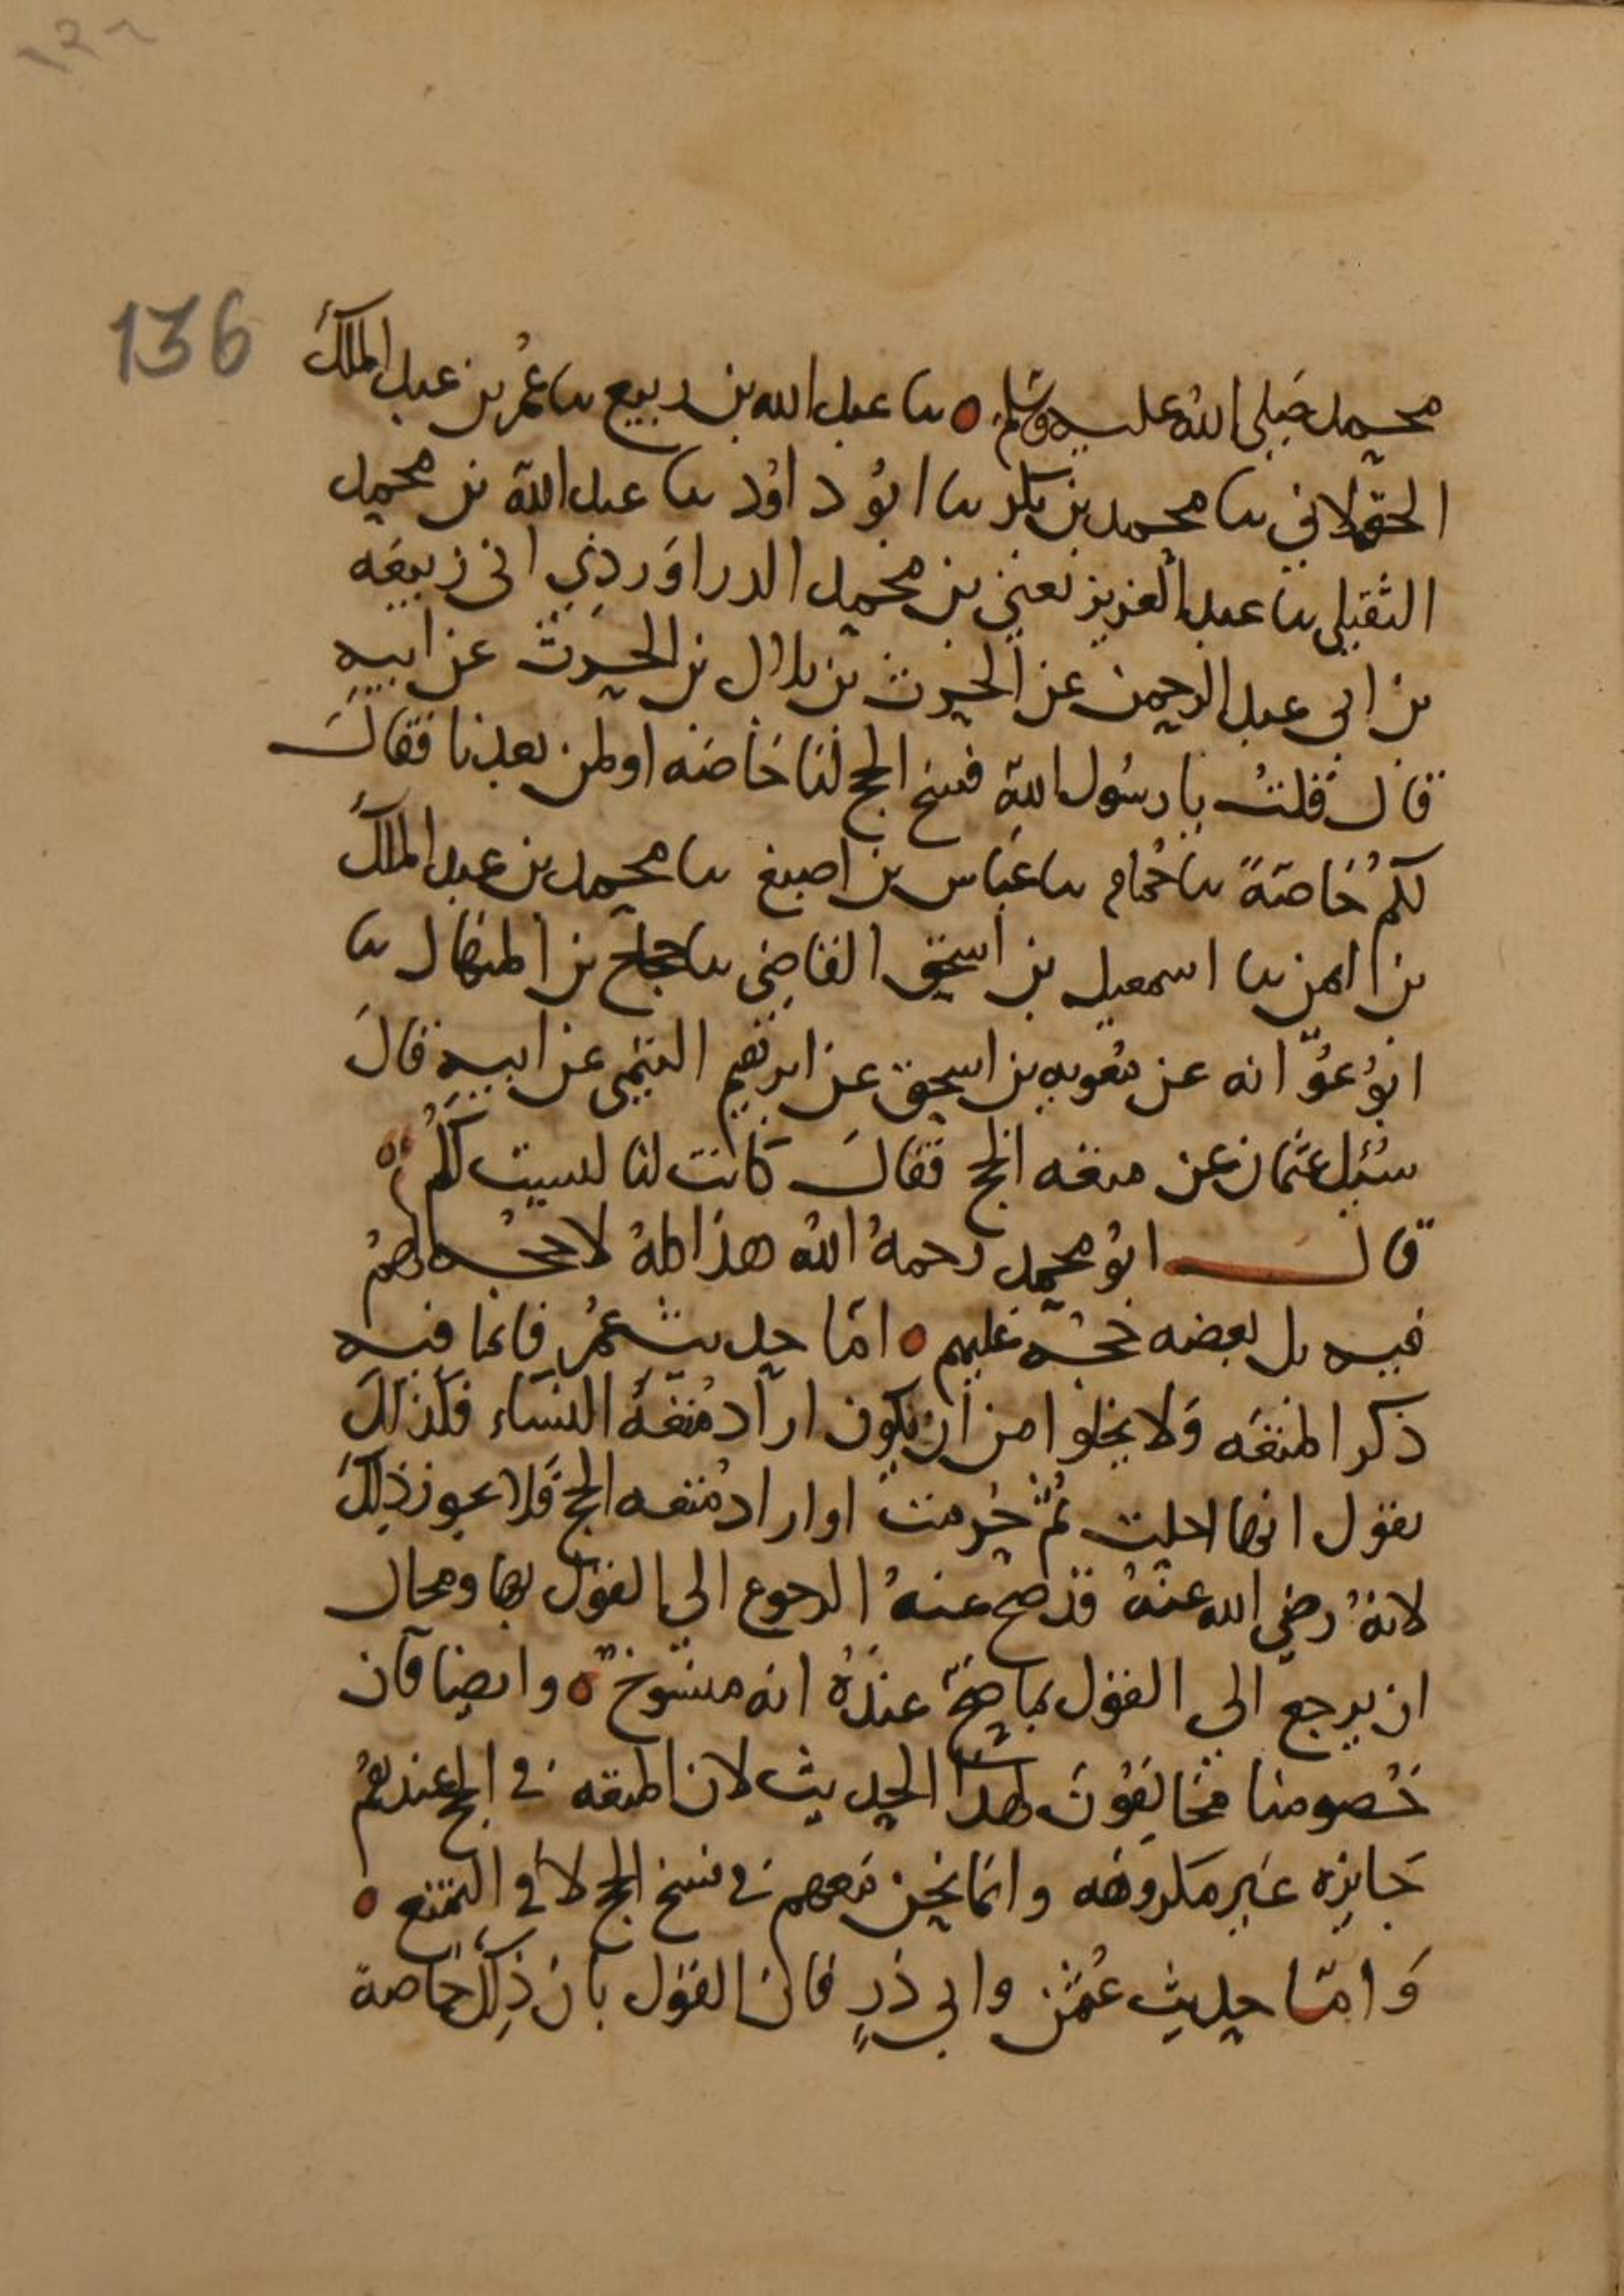 136
محمد صلى الله عليه وسلم ٥ نا عبد الله بن ربيع نا عمر بن عبد الملك
الخولاني نا محمد بن بكر نا ابو داود نا عبد الله بن محمد
النفيلي نا عبد العزيز يعني بن محمد الدراوردي اني ربيعه
بن ابي عبد الرحمن عن الحرث بن بلال بن الحرث عن ابيه
قال قلت يا رسول الله فسخ الحج لنا خاصه او لمن بعدنا فقال
لكم خاصة نا حمام نا عباس بن اصبغ نا محمد بن عبد الملك
بن ايمن نا اسمعيل بن اسحق القاضي نا حجاج بن المنهال نا
ابو عوانه عن معويه بن اسحق عن ابرهيم التيمي عن ابيه قال
سئل عثمان عن متعه الحج فقال كانت لنا ليست لكم ٥
قال ابو محمد رحمه الله هذا كله لا حجه لهم
فيه بل بعضه حجه عليهم ٥ اما حديث عمر فانما فيه
ذكر المتعه ولا يخلوا من ان يكون اراد متعة النساء فكذلك
نقول انها احلت ثم حرمت او اراد متعه الحج فلا يجوز ذلك
لانه رضي الله عنه قد صح عنه الرجوع الى القول بها ومحال
ان يرجع الى القول بما صح عنده انه منسوخ ٥ وايضا فان
خصومنا مخالفون لهذا الحديث لان المتعه في الحج عندهم
جايزه غير مكروهه وانما نحن معهم في فسخ الحج لا في التمتع ٥
واما حديث عثمن وابي ذر فان القول بان ذلك خاصة